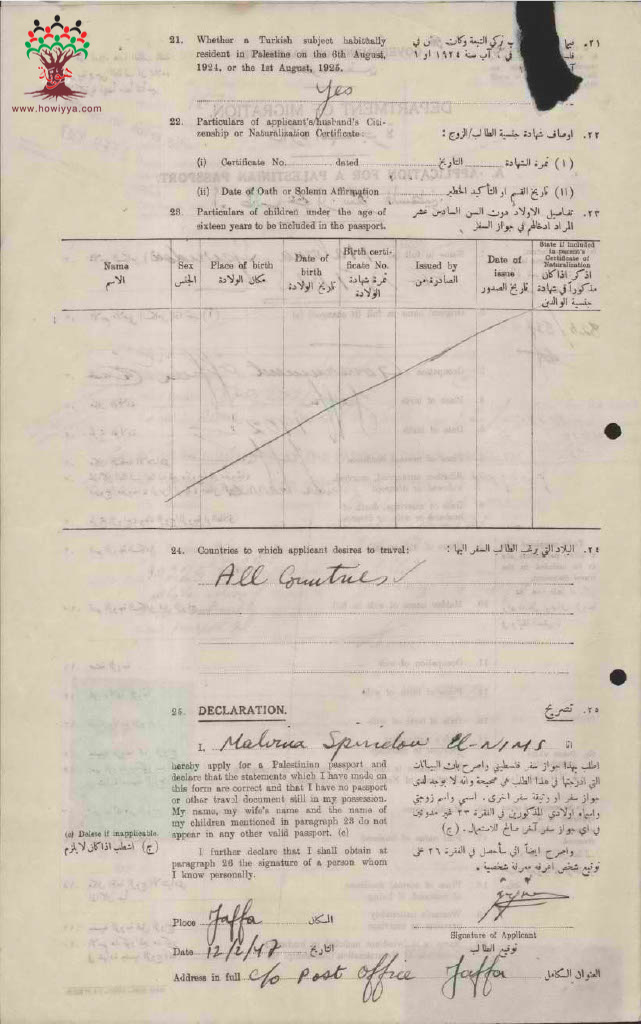 www.howiyya.com
21. Whether a Turkish subject habitually
resident in Palestine on the 6th August,
1924, or the 1st August, 1925.
Yes
٢١.
تركي التبعة وكان
في ٦ آب سنة ١٩٢٤ او ١
22. Particulars of applicant's/husband's Citi-
zenship or Naturalization Certificate:
٢٢. اوصاف شهادة جنسية الطالب/الزوج :
(i) Certificate No. dated
التاريخ (١) نمرة الشهادة
(ii) Date of Oath or Solemn Affirmation
(١١) تاريخ القسم او التأكيد الخطير
23. Particulars of children under the age of
sixteen years to be included in the passport.
٢٣. تفاصيل الاولاد دون السن السادس عشر
المراد ادخالهم في جواز السفر
Name
الاسم
Sex
الجنس
Place of birth
مكان الولادة
Date of
birth
تاريخ الولادة
Birth certi-
ficate No.
نمرة شهادة
الولادة
Issued by
الصادرة من
Date of
issue
تاريخ الصدور
State if included
in person's
Certificate of
Naturalization
اذكر اذا كان
مذكوراً في شهادة
جنسية الوالدين
24. Countries to which applicant desires to travel:
٢٤. البلاد التي يرغب الطالب السفر اليها :
All Countries
25. DECLARATION.
٢٥. تصريح
I. Malvina Spiridon El-NIMS انا
hereby apply for a Palestinian passport and
declare that the statements which I have made on
this form are correct and that I have no passport
or other travel document still in my possession.
My name, my wife's name and the name of
my children mentioned in paragraph 23 do not
appear in any other valid passport. (c)
اطلب بهذا جواز سفر فلسطيني واصرح بان البيانات
التي ادرجتها في هذا الطلب هي صحيحة وانه لا يوجد لدي
جواز سفر او وثيقة سفر اخرى. اسمي واسم زوجتي
واسماء اولادي المذكورين في الفقرة ٢٣ غير مدونين
في اي جواز سفر آخر صالح للاستعمال. (ج)
(c) Delete if inapplicable.
(ج) اشطب اذا كان لا يلزم
I further declare that I shall obtain at
paragraph 26 the signature of a person whom
I know personally.
واصرح ايضاً اني سأحصل في الفقرة ٢٦ على
توقيع شخص اعرفه معرفة شخصية.
Place Jaffa المكان
Signature of Applicant
توقيع الطالب
Date 12/2/47 التاريخ
Address in full c/o Post Office Jaffa العنوان الكامل